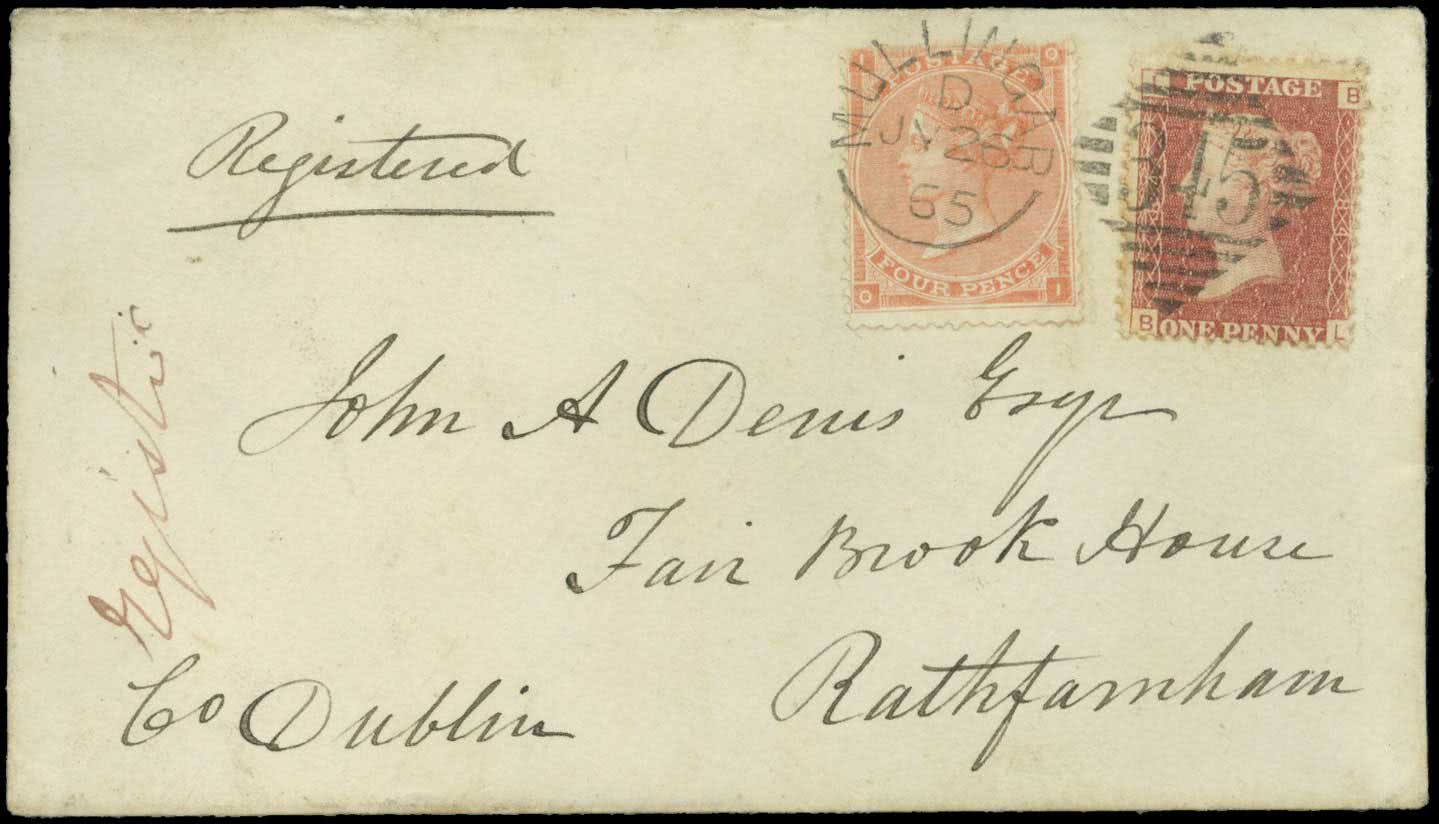 Registered
Registered
I O
POSTAGE
FOUR PENCE
O I
MULLINGAR
D
JY 26
65
L B
POSTAGE
345
ONE PENNY
B L
John A Denis Esqr
Fair Brook House
Rathfarnham
Co Dublin